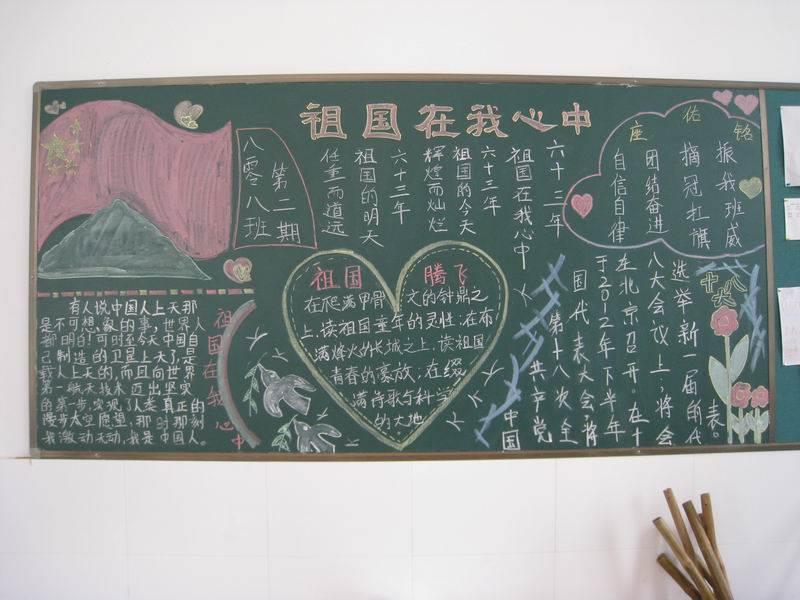 祖国在我心中
八零八班
第二期
六十三年
祖国在我心中
六十三年
祖国的今天
辉煌而灿烂
六十三年
祖国的明天
任重而道远
座佑铭
振我班威
摘冠扛旗
团结奋进
自信自律
有人说中国人上天那
是不可想象的事，世界人
都明白！可时至今天中国自
己制造的卫星上天了，是
我人上天的，而且向世界
第一航天技术迈出坚实
的第一步，实现了人类真正的
漫步太空愿望，那时那刻
我激动无动，我是中国人。
祖国在我心中
祖国 腾飞
在爬满甲骨文的钟鼎之
上，读祖国童年的灵性；在布
满烽火的长城之上，读祖国
青春的豪放；在缀
满诗歌与科学
的大地
十八大
中国
共产党
第十八次全
国代表大会将
于2012年下半年
在北京召开。在十
八大会议上，将会
选举新一届的代
表。